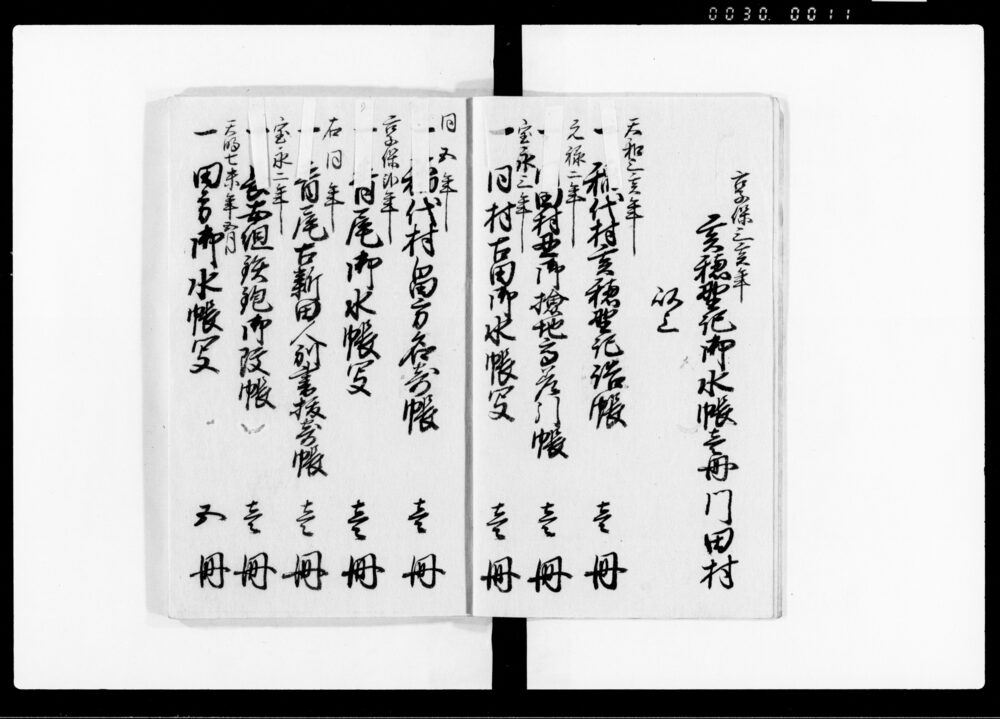 0030. 0011
享保三亥年
亥穂野記御水帳壱冊門田村
以上
天和三亥年
一 稲代村亥穂野記諸帳 壱冊
元禄二年
一 同村丑御検地高差引帳 壱冊
宝永三年
一 同村古田御水帳写 壱冊
同五年
一 稲代村畠方名寄帳 壱冊
享保卯年
一 脊尾御水帳写 壱冊
右同年
一 脊尾古新田人別書抜寄帳 壱冊
宝永二年
一 組鉄炮御改帳 壱冊
天明七未年五月
一 田方御水帳写 五冊